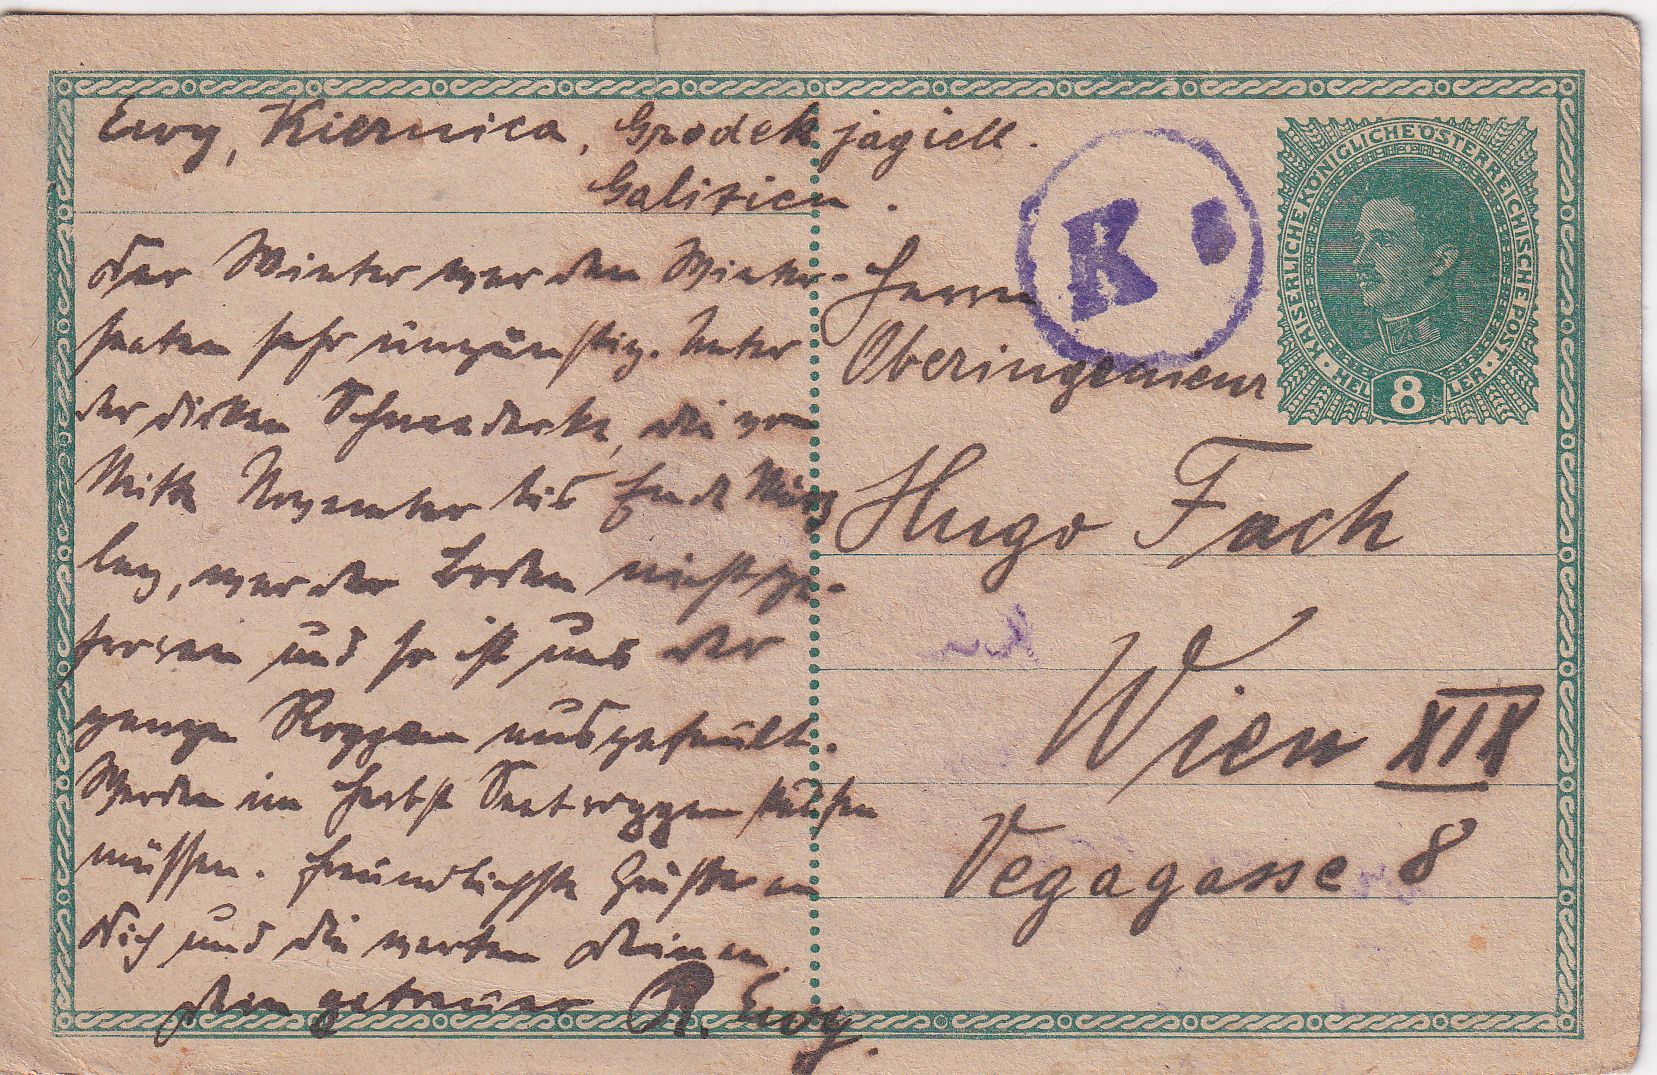 Ewy, Kiernica, Grodek jagiell.
Galizien.
Der Winter war den Winter-
saaten sehr ungünstig. Unter
der dicken Schneedecke, die von
Mitte November bis Ende März
lag, war der Boden nicht ge-
froren und so ist uns der
ganze Roggen ausgefault.
Werden im Herbst Saatroggen kaufen
müssen. Freundlichste Grüße an
Dich und die werten Deinen.
Dein getreuer R. Ewy.
K
KAISERLICHE KÖNIGLICHE ÖSTERREICHISCHE POST
HELLER
8
Herrn
Oberingenieur
Hugo Fach
Wien XIX
Vegagasse 8